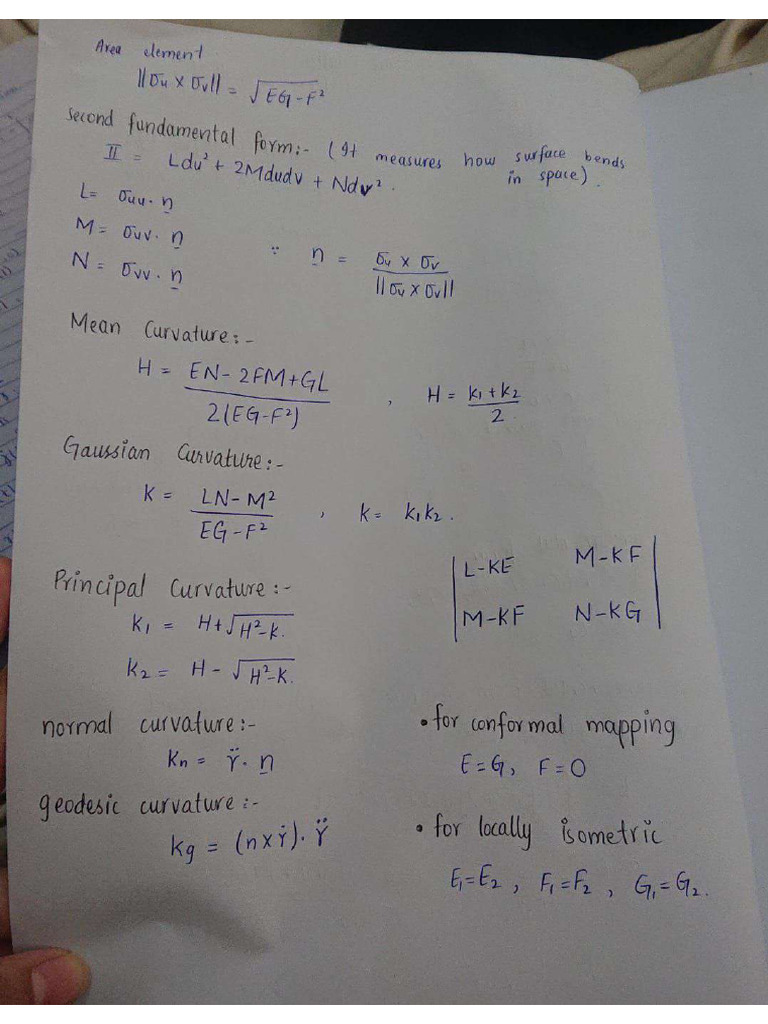 Area element
||σu × σv|| = √EG-F²
second fundamental form:- (It measures how surface bends in space).
II = Ldu² + 2Mdudv + Ndv².
L= σuu. n
M= σuv. n
N= σvv. n
∵ n = σu × σv / ||σu × σv||
Mean Curvature:-
H = EN-2FM+GL / 2(EG-F²) , H = k1+k2 / 2
Gaussian Curvature:-
K = LN-M² / EG-F² , K= k1k2.
|L-KE M-KF|
|M-KF N-KG|
Principal Curvature:-
K1 = H+√H²-K.
K2 = H-√H²-K.
normal curvature:-
Kn = γ̈. n
geodesic curvature:-
Kg = (n×γ̇). γ̈
• for conformal mapping
E=G, F=0
• for locally isometric
E1=E2, F1=F2, G1=G2.